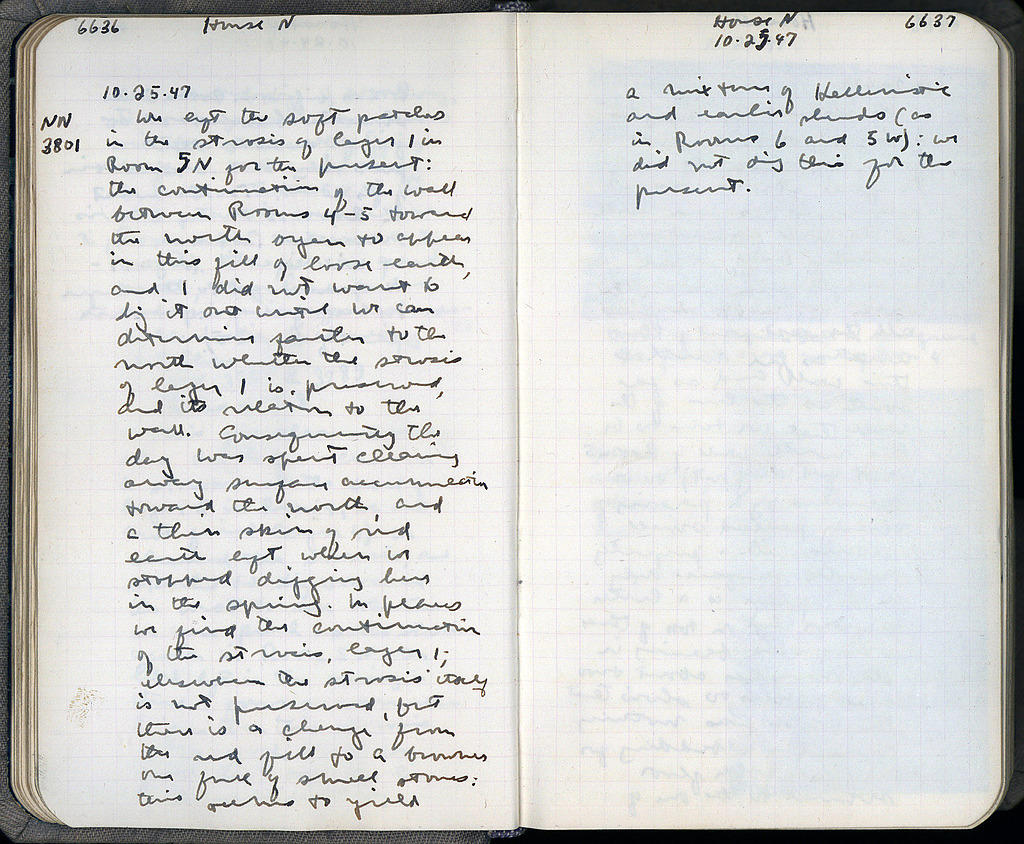 6636 House N
10.25.47
NN
3801
We left the soft patches
in the strosis of layer 1 in
Room 5N for the present:
the continuation of the wall
between Rooms 4-5 toward
the north ogen to appear
in this fill of loose earth,
and I did not want to
dig it out until we can
determine farther to the
north whether the strosis
of layer 1 is preserved,
and its relation to the
wall. Consequently the
day was spent clearing
away surface accumulation
toward the north, and
a thin skin of red
earth left when we
stopped digging here
in the spring. In places
we find the continuation
of the strosis, layer 1;
elsewhere the strosis itself
is not preserved, but
there is a change from
the red fill to a browner
one full of small stones:
this seems to yield
House N 6637
10.25.47
a mixture of Hellenistic
and earlier sherds (as
in Rooms 6 and 5W): we
did not dig this for the
present.